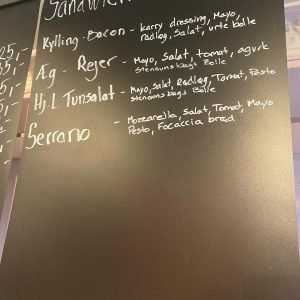 Sandwich
25,-
Kylling-Bacon - karry dressing, Mayo,
Rødløg, Salat, urte bolle
Æg - Rejer - Mayo, Salat, tomat, agurk
Stenovns bags Bolle
Hj.L. Tunsalat - Mayo, Salat, Rødløg, Tomat, Pesto
Stenovns bags Bolle
Serrano - Mozzarella, Salat, Tomat, Mayo
Pesto, Focaccia brød